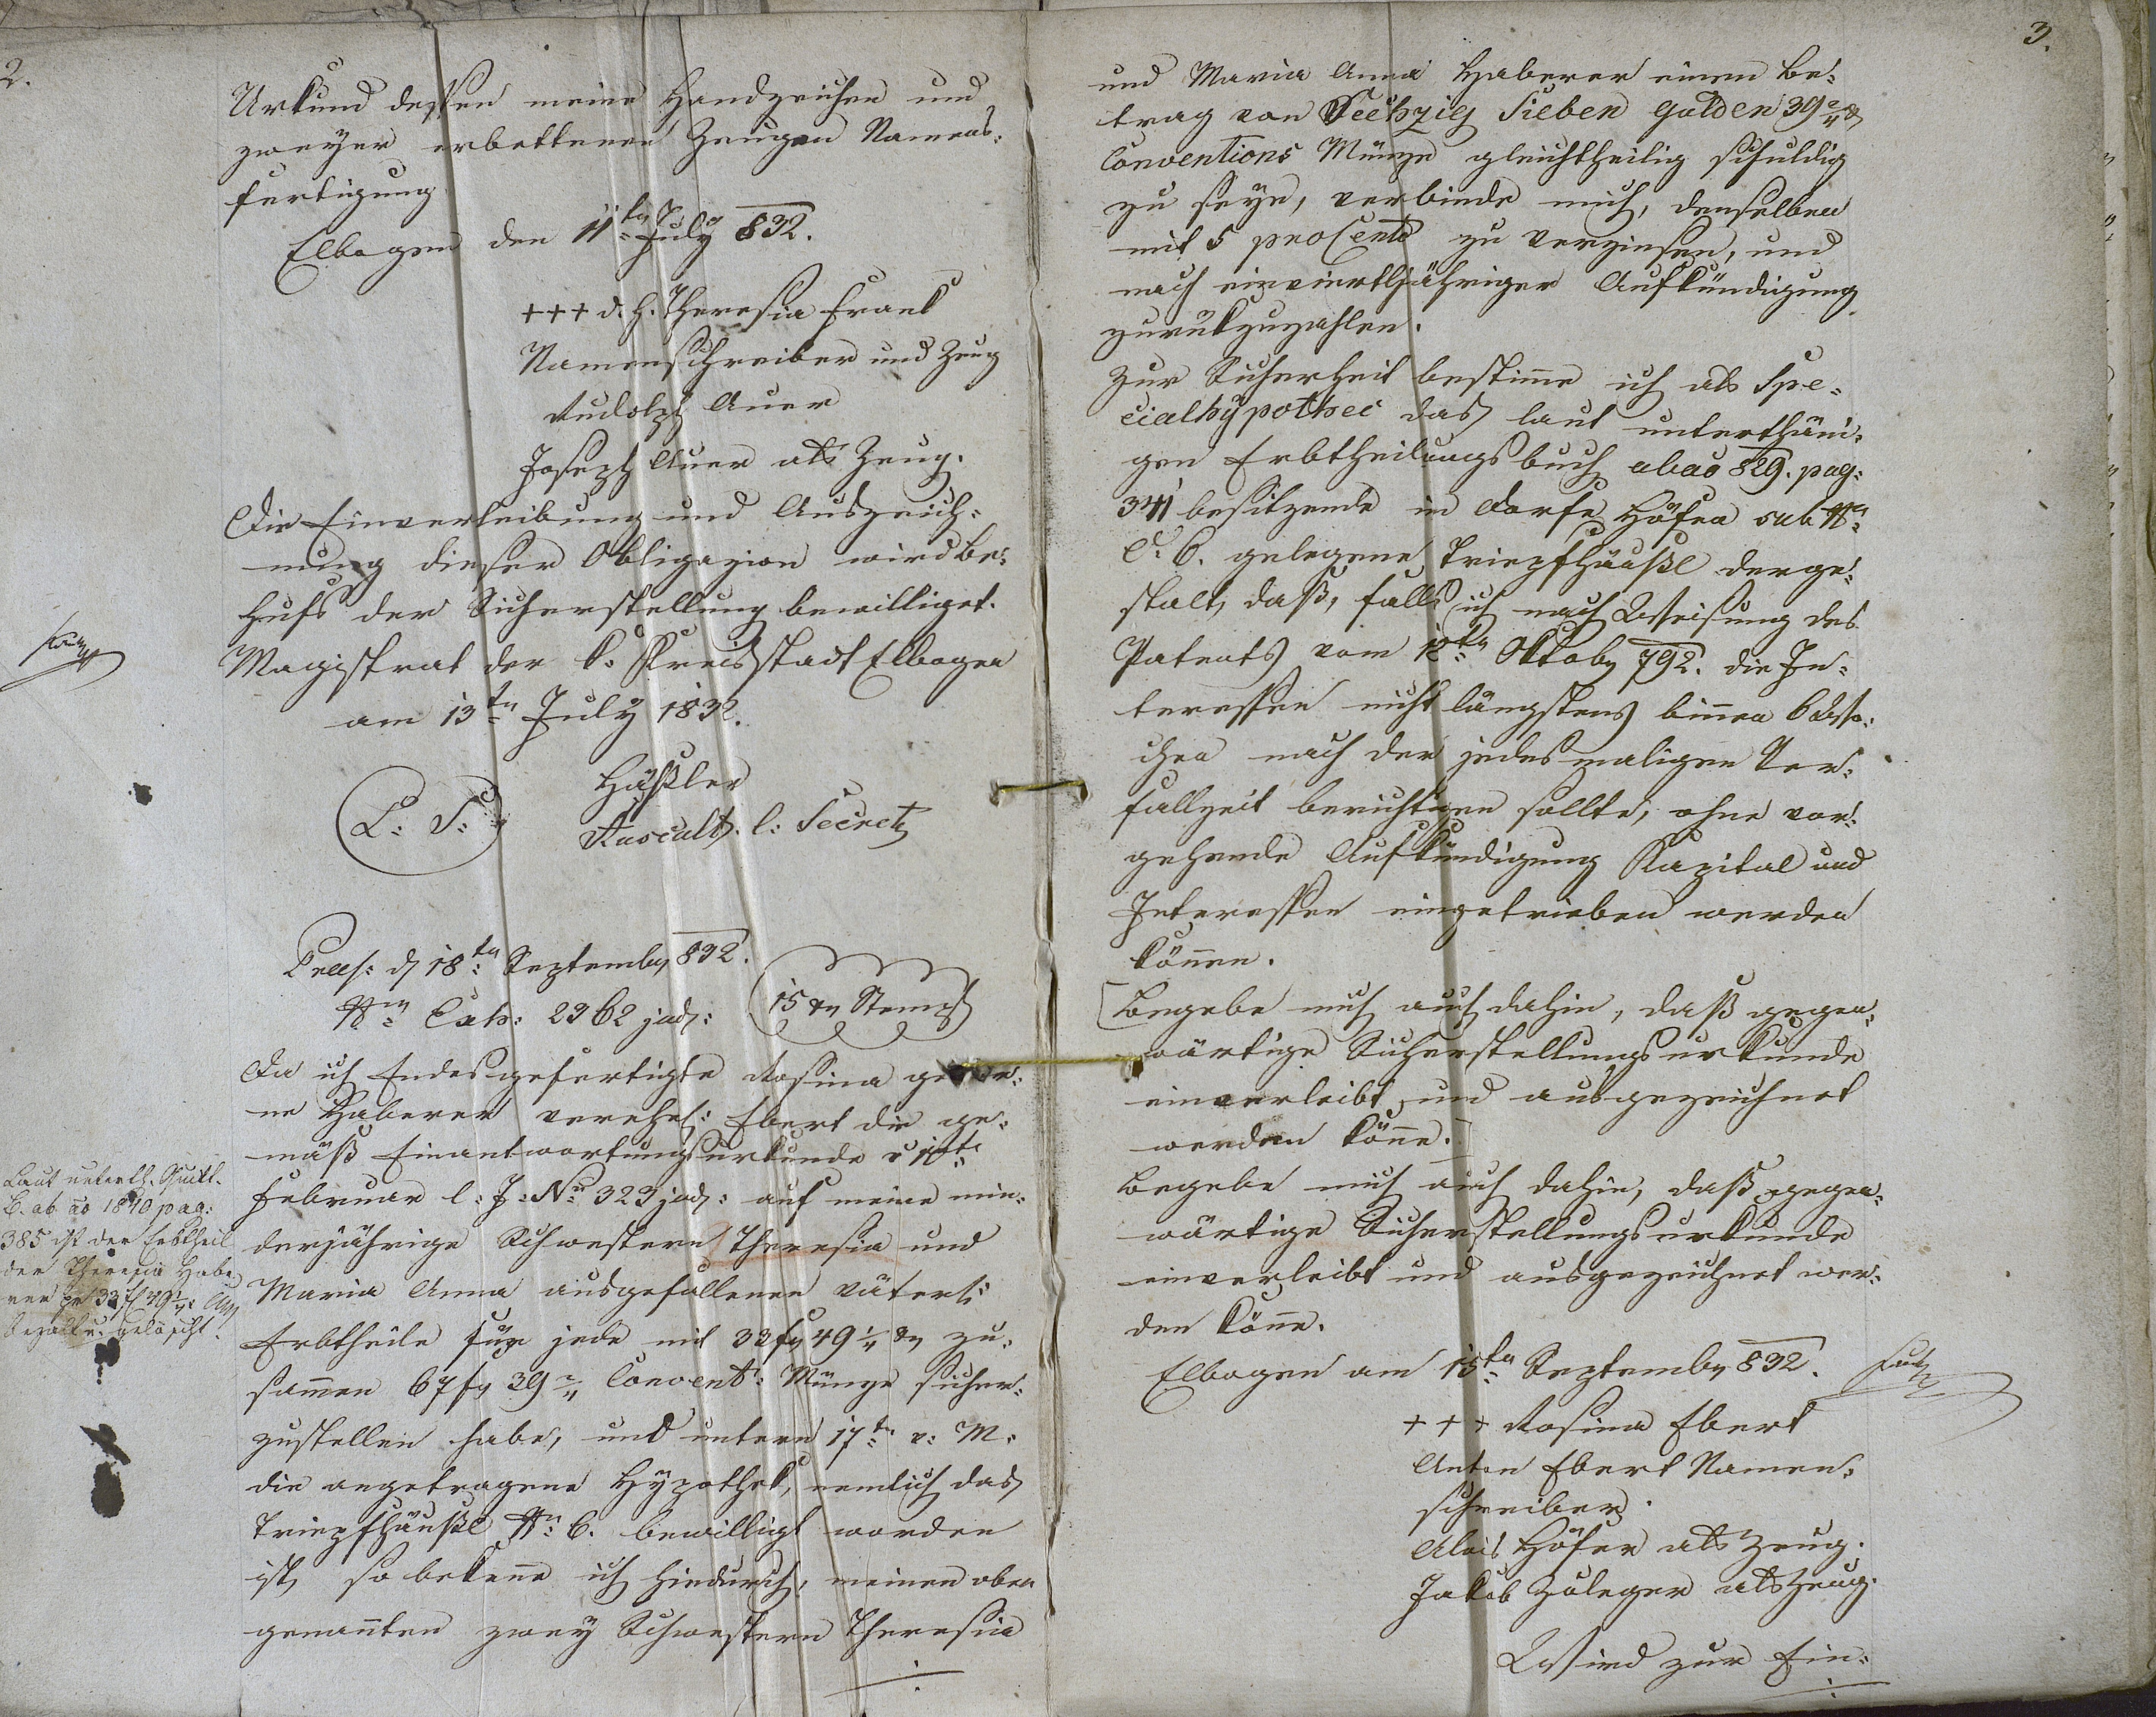 2.
Urkund dessen meine Handzeichen und
zweyer erbettenen Zeugen Namens=
fertigung
Elbogen den 11ten July 832.
+++ d. h. Theresia Frank
Namenschreiber und Zeug
Rudolph Auer
Joseph Auer als Zeug.
Die Einverleibung und Auszeich=
nung dieser Obligazion wird be=
hufs der Sicherstellung bewilliget.
Magistrat der k. Kreisstadt Elbogen
am 13ten July 1832.
L: S:
Häßler
Auscult. l: Secret
Praes: d 18ten Septemb 832.
Nro Exh: 2362 jud:
15 xr Stempf
Da ich Endesgefertigte Rosina gebor=
ne Haberer verehel: Ebert die ge=
mäß Einantwortungsurkunde
Februar l: J: No 323 jud: auf meine min=
derjährige Schwestern Theresia und
Maria Anna ausgefallenen väterl:
Erbtheile für jede mit 33 f 49 1/4 xr zu=
sammen 67 f 39 2/4 Convent: Münze sicher=
zustellen habe, und unterm 17ten v: M:
die angetragene Hypothek, nemlich das
Tripfhäußl No 6. bewilligt worden
ist, so bekenne ich hiedurch, meinen oben
genannten zwey Schwestern Theresia
Laut unterth. Quitt.
B. ab ao 1840 pag:
385 ist der Erbtheil
der Theresia Habe
rer pr 33 f 49 1/4
bezalt u. gelöscht.
3.
und Maria Anna Haberer einen Be=
trag von Sechzig Sieben Gulden 39 2/4 xr
Conventions Münze gleichtheilig schuldig
zu seyn, verbinde mich, denselben
mit 5 pro Cento zu verzinsen, und
nach einvierthljähriger Aufkündigung
zurükzuzahlen.
Zur Sicherheit bestimme ich als Spe=
cialhypothec das laut unterthäni=
gen Erbtheilungsbuch ab ao 829. pag:
341 besitzende in Dorfe Höfen sub No
C. 6. gelegene Tripfhäußl derge=
stalt, daß, falls ich nach Weisung des
Patents vom 12ten Oktob 792. die In=
teressen nicht längstens binnen 6 Wo=
chen nach der jedesmaligen Ver=
fallzeit berichtigen sollte, ohne vor=
gehende Aufkündigung Kapital und
Interessen eingetrieben werden
können.
[Begebe mich auch dahin, daß gegen=
wärtige Sicherstellungsurkunde
einverleibt und ausgezeichnet
werden könne.]
Begebe mich auch dahin, daß gegen=
wärtige Sicherstellungsurkunde
einverleibt und ausgezeichnet wer=
den könne.
Elbogen am 15ten Septemb 832.
+++ Rosina Ebert
Anton Ebert Namen=
schreiber.
Alois Höfer als Zeug.
Jakob Zuleger als Zeug.
Wird zur Ein=